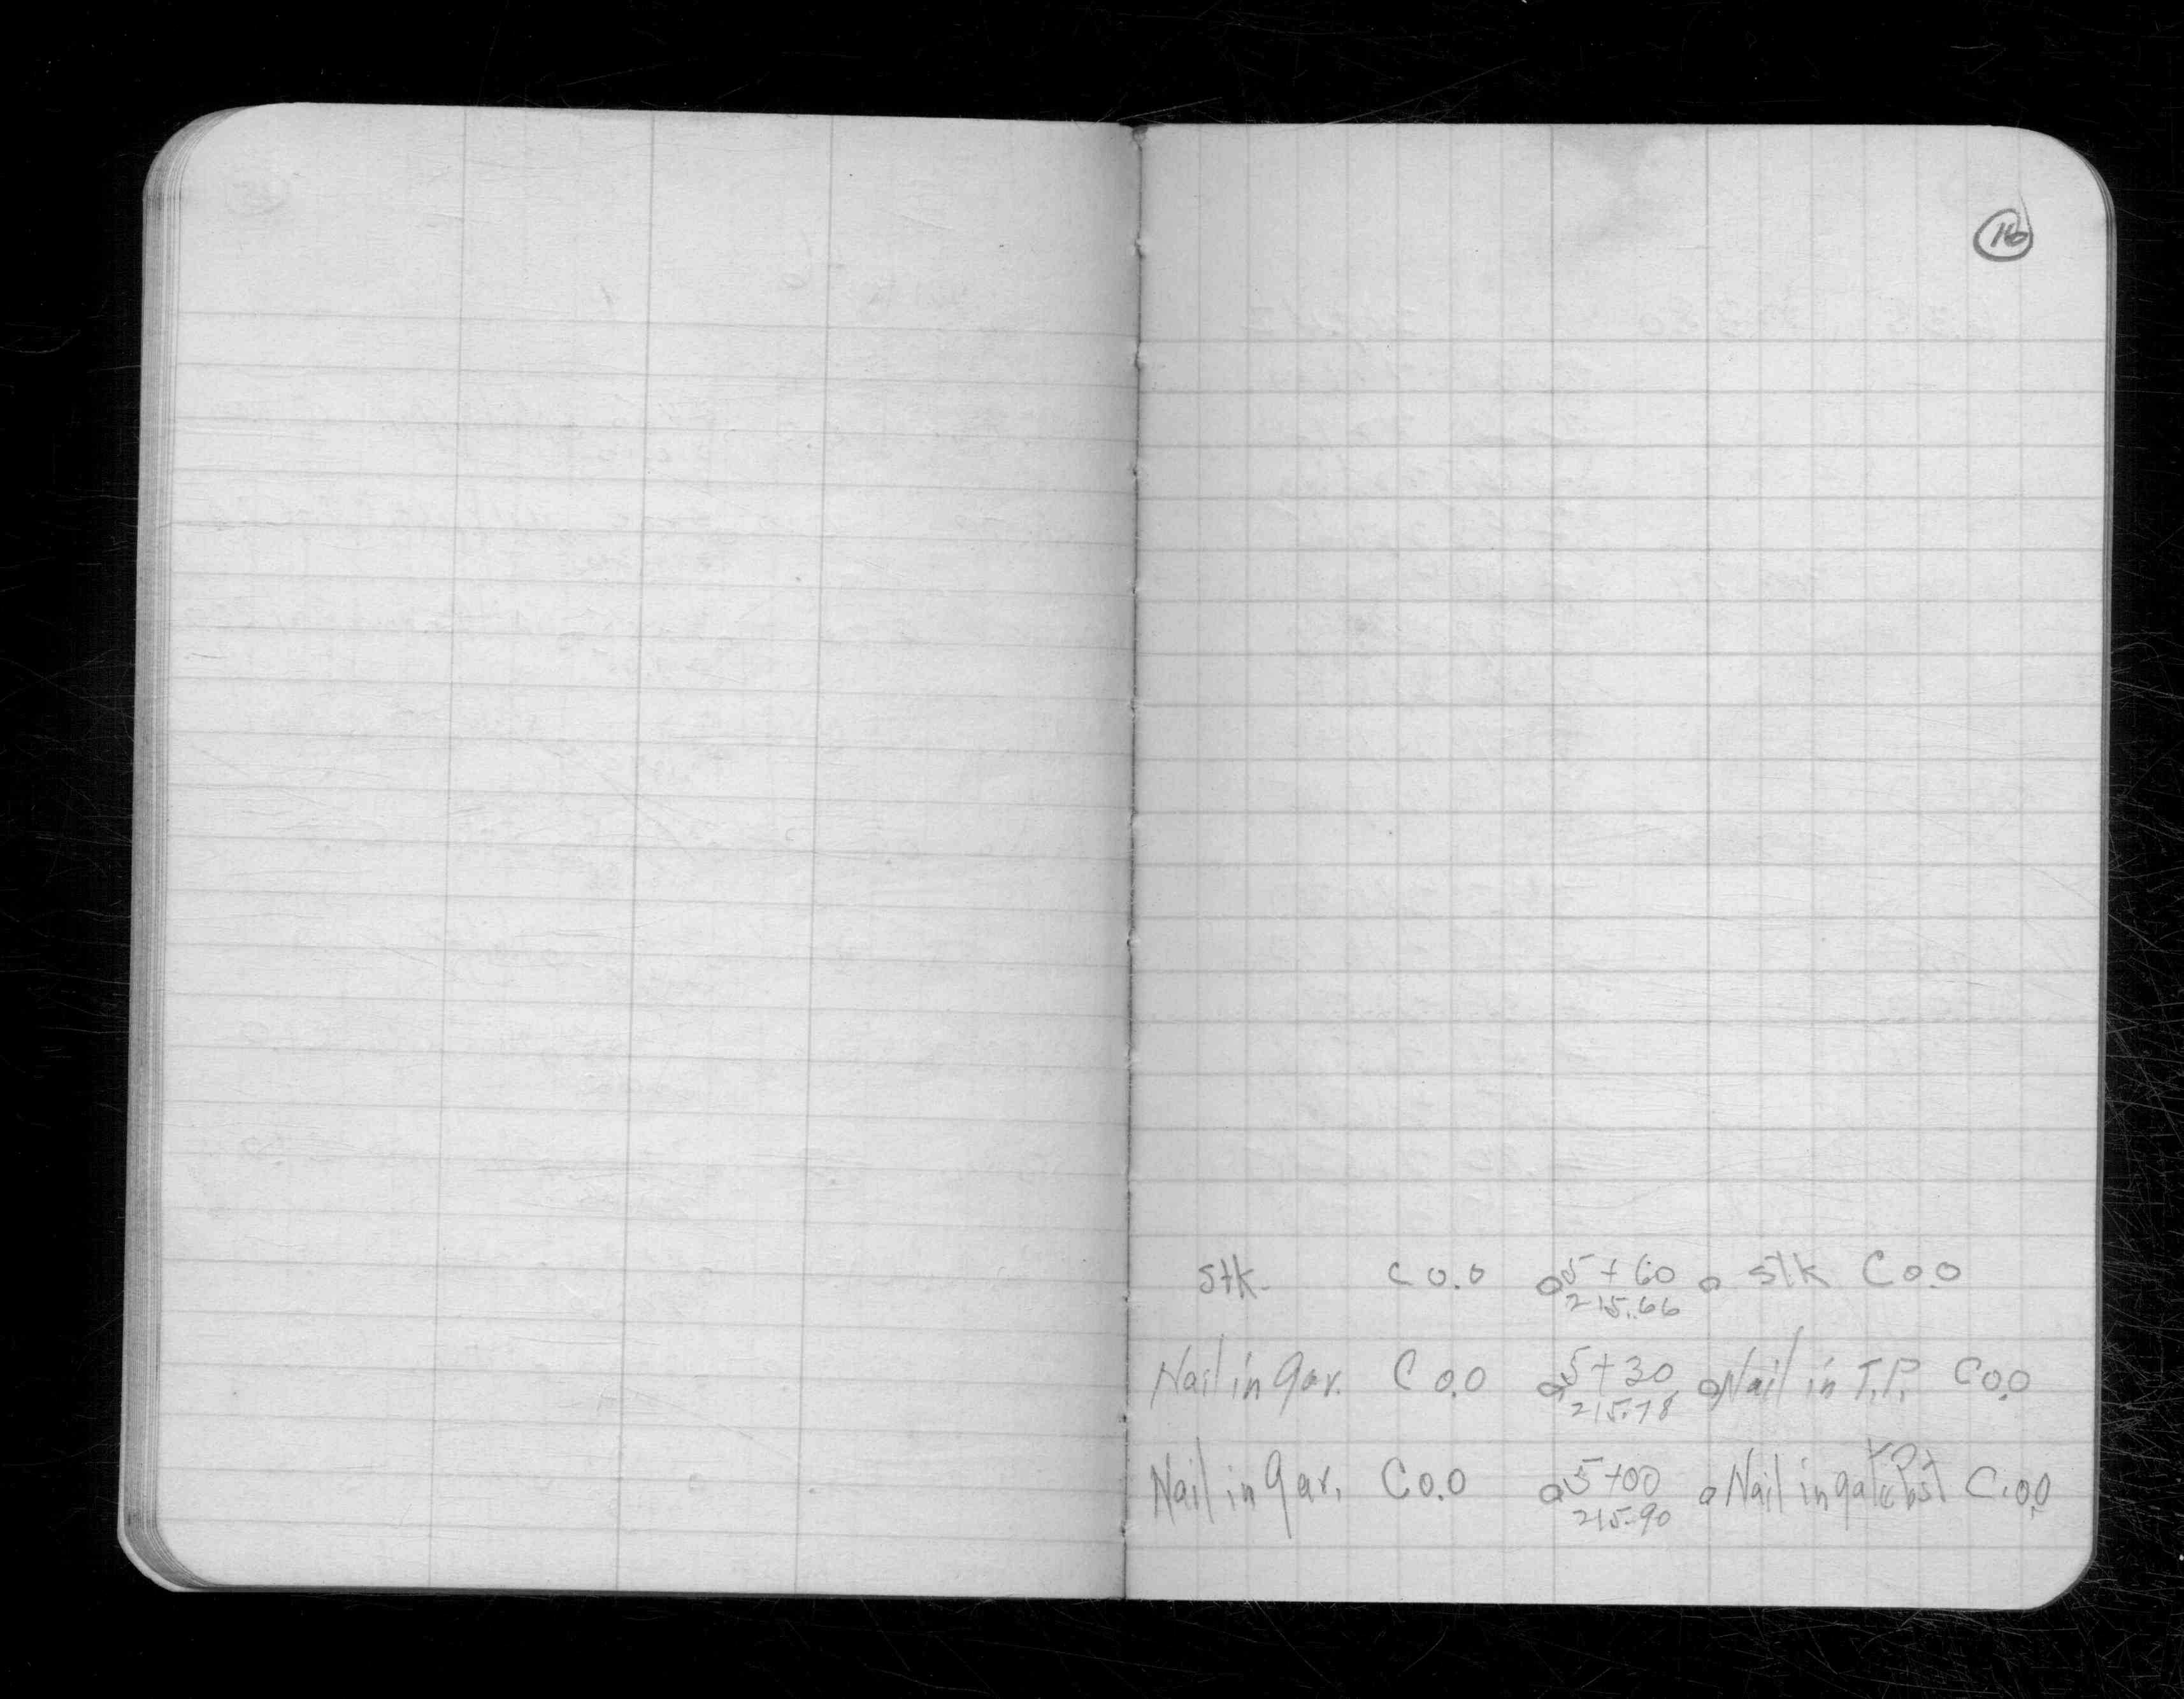 16
stk. C 0.0 o 5+60 o stk C 0.0
215.66
Nail in gar. C 0.0 o 5+30 o Nail in T.P. C 0.0
215.78
Nail in gar. C 0.0 o 5+00 o Nail in gate C.0.0
215.90